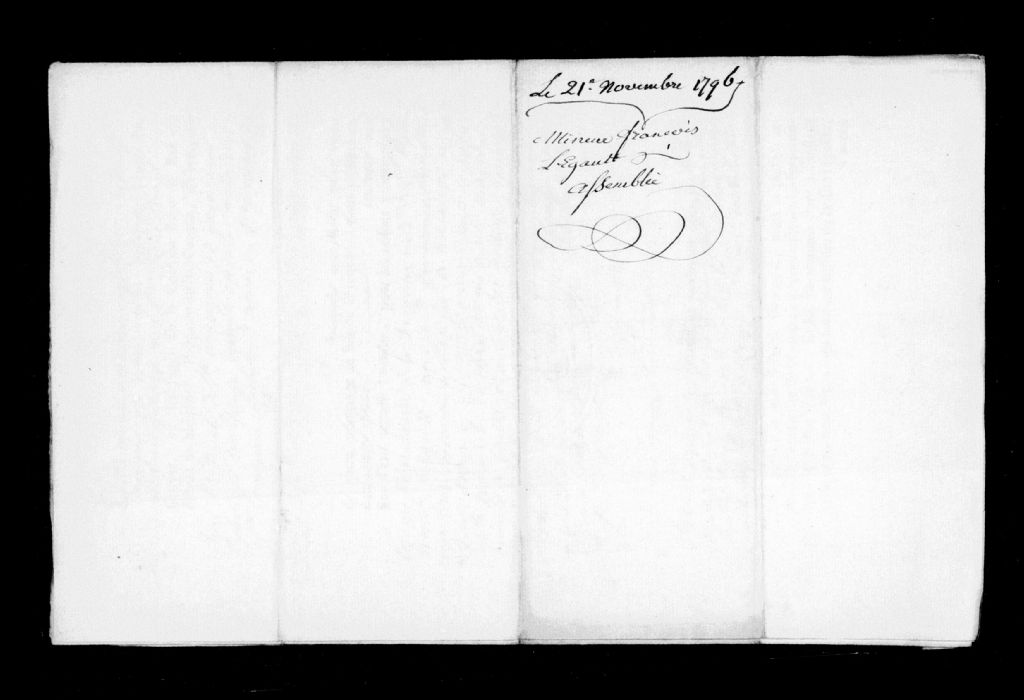 Le 21e Novembre 1796
Mineur françois
L'Egaut
Assemblée